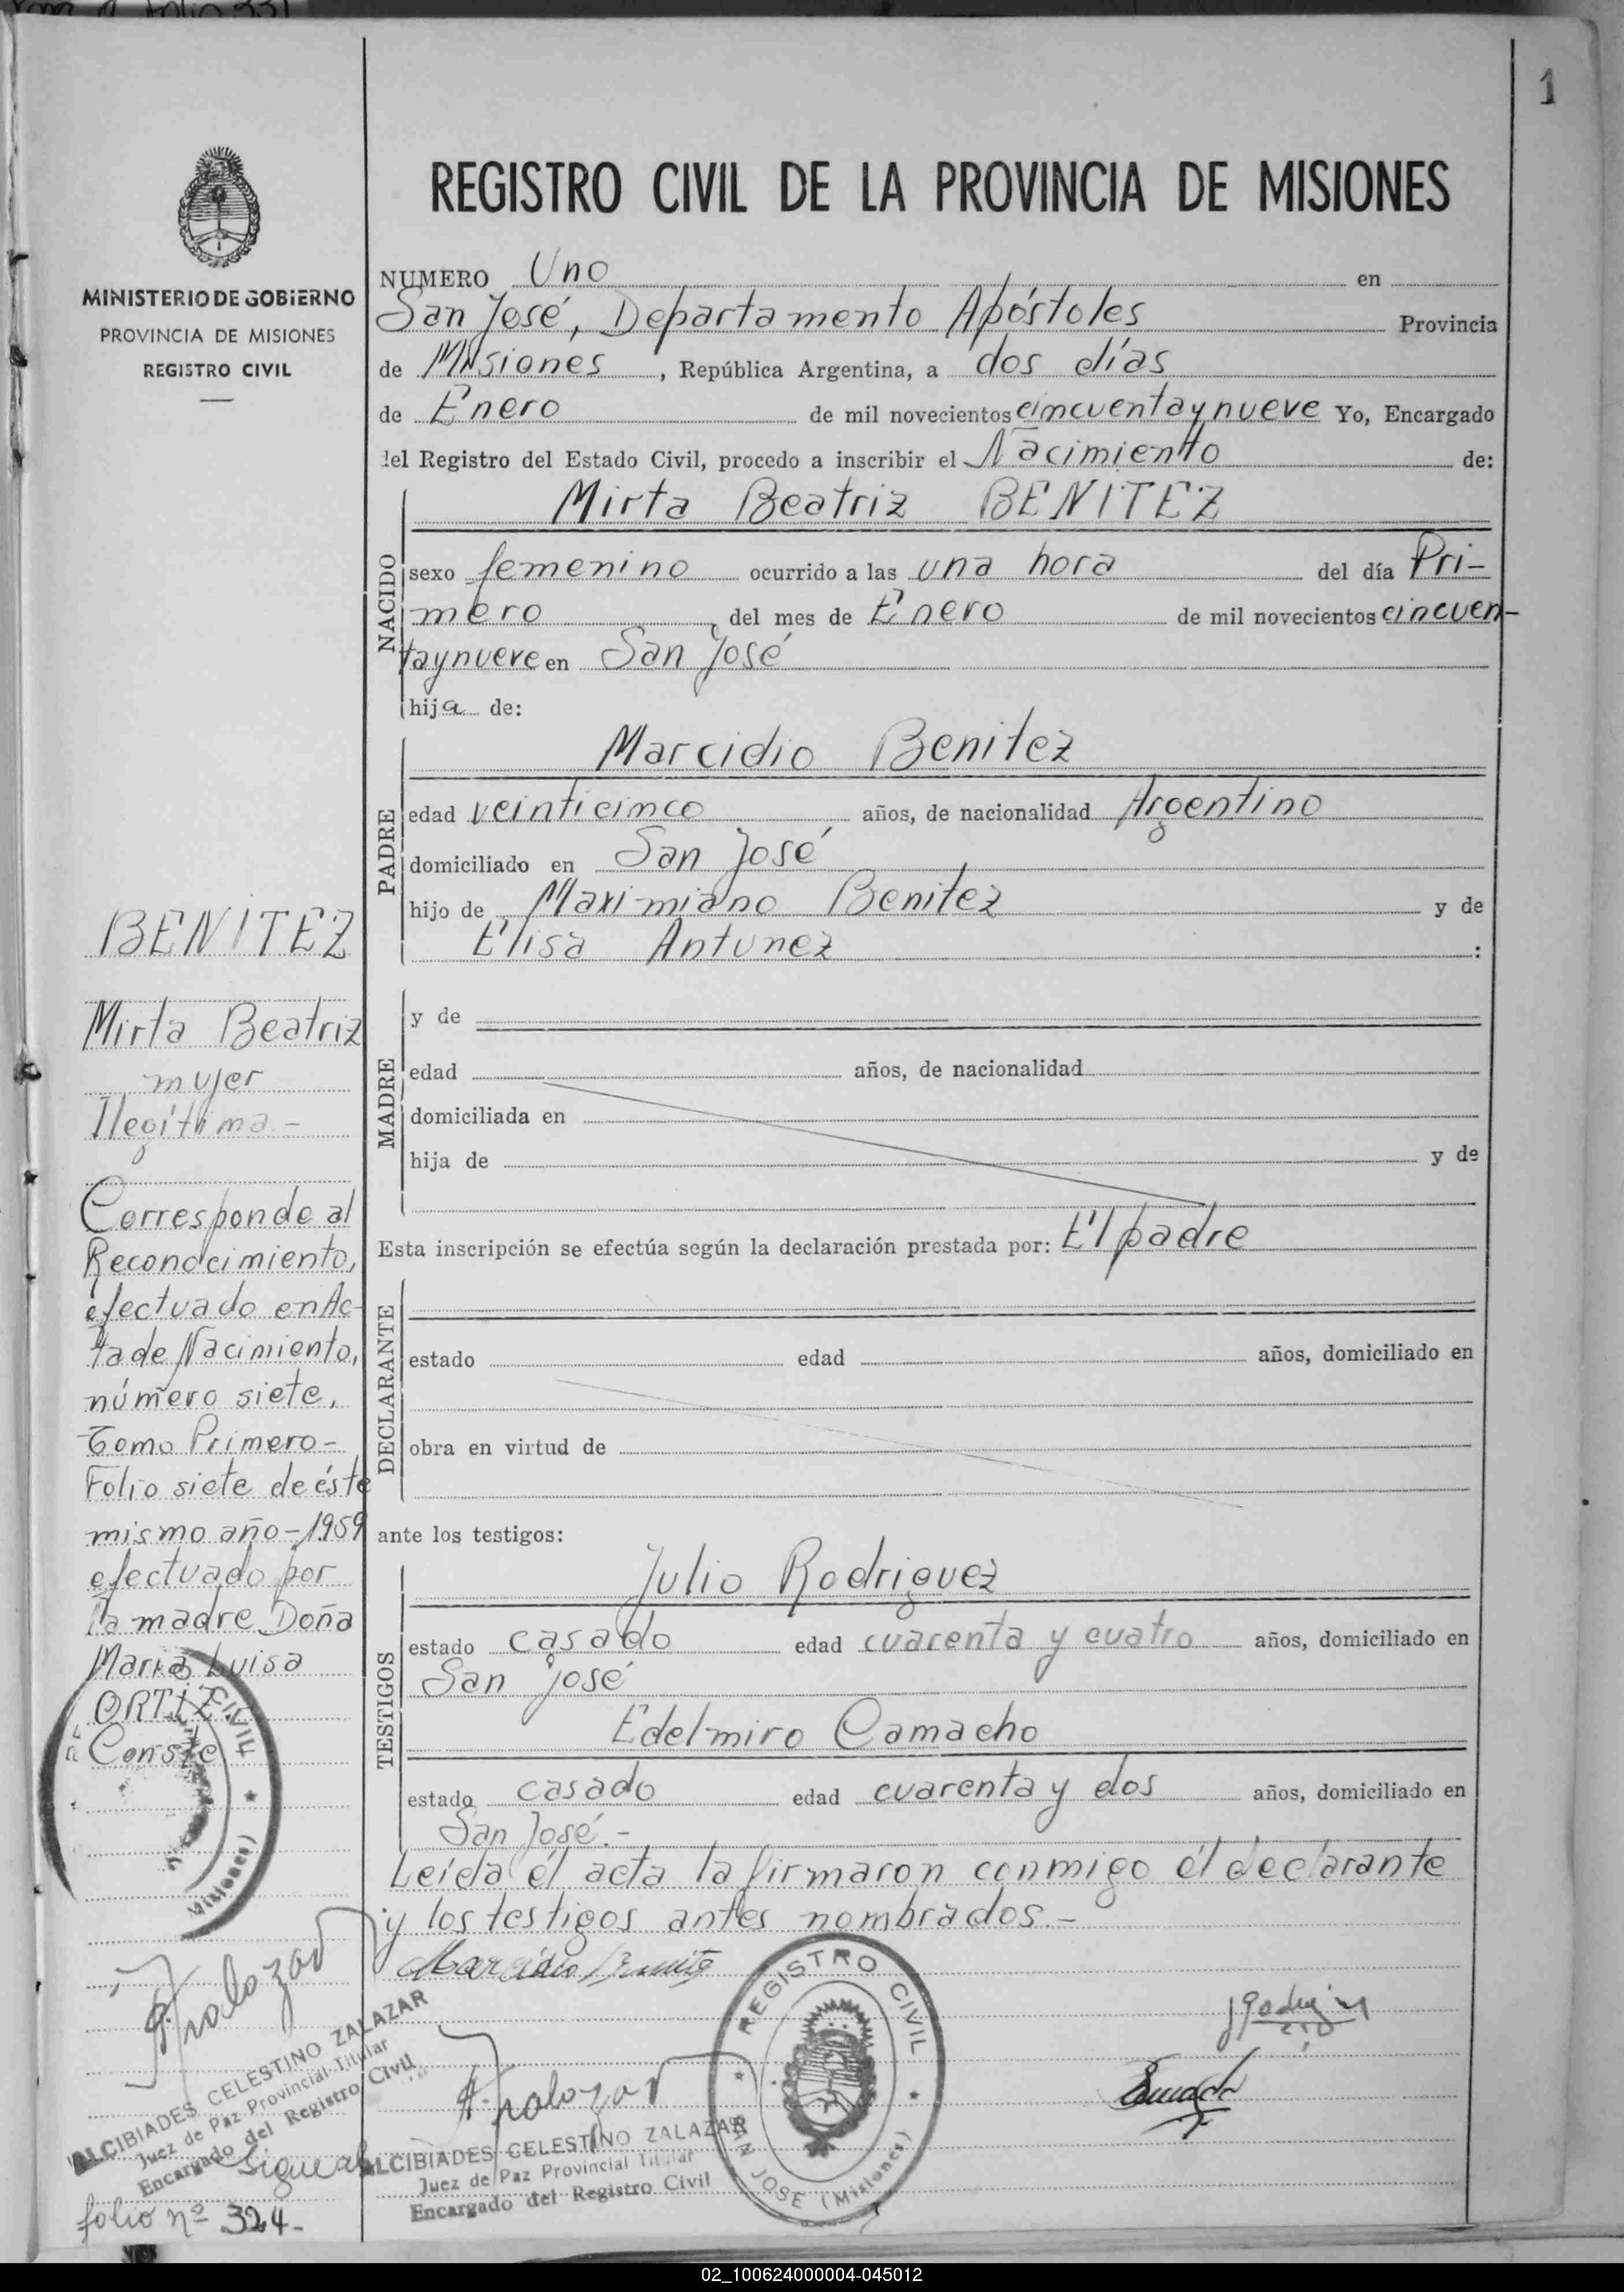 1
REGISTRO CIVIL DE LA PROVINCIA DE MISIONES
MINISTERIO DE GOBIERNO
PROVINCIA DE MISIONES
REGISTRO CIVIL
NUMERO Uno en
San José, Departamento Apóstoles Provincia
de Misiones, República Argentina, a dos días
de Enero de mil novecientos cincuenta y nueve Yo, Encargado
del Registro del Estado Civil, procedo a inscribir el Nacimiento de:
NACIDO
Mirta Beatriz BENITEZ
sexo femenino ocurrido a las una hora del día Pri-
mero, del mes de Enero de mil novecientos cincuen-
ta y nueve en San José
hija de:
PADRE
Marcidio Benitez
edad veinticinco años, de nacionalidad Argentino
domiciliado en San José
hijo de Maximiano Benitez y de
Elisa Antunez :
MADRE
y de
edad años, de nacionalidad
domiciliada en
hija de y de
Esta inscripción se efectúa según la declaración prestada por: El padre
DECLARANTE
estado edad años, domiciliado en
obra en virtud de
ante los testigos:
TESTIGOS
Julio Rodriguez
estado casado edad cuarenta y cuatro años, domiciliado en
San José
Edelmiro Camacho
estado casado edad cuarenta y dos años, domiciliado en
San José.-
Leída el acta la firmaron conmigo el declarante
y los testigos antes nombrados.-
Marcidio Benitez
REGISTRO CIVIL
SAN JOSE (Misiones)
ALCIBIADES CELESTINO ZALAZAR
Juez de Paz Provincial Titular
Encargado del Registro Civil
BENITEZ
Mirta Beatriz
mujer
Ilegítima.-
Corresponde al
Reconocimiento,
efectuado en Ac-
ta de Nacimiento,
número siete,
Tomo Primero-
Folio siete de éste
mismo año-1959
efectuado por
la madre Doña
María Luisa
ORTIZ
Conste
CIVIL
(Misiones)
ALCIBIADES CELESTINO ZALAZAR
Juez de Paz Provincial-Titular
Encargado del Registro Civil
Sigue al
folio nº 324-
02_100624000004-045012